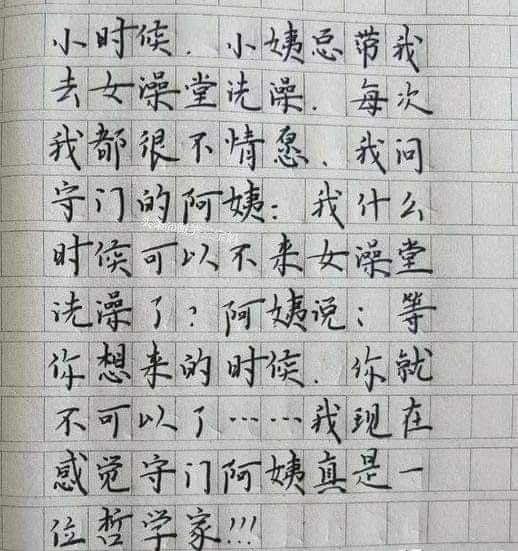 小时候，小姨总带我
去女澡堂洗澡，每次
我都很不情愿，我问
守门的阿姨：我什么
时候可以不来女澡堂
洗澡了？阿姨说：等
你想来的时候，你就
不可以了……我现在
感觉守门阿姨真是一
位哲学家!!!